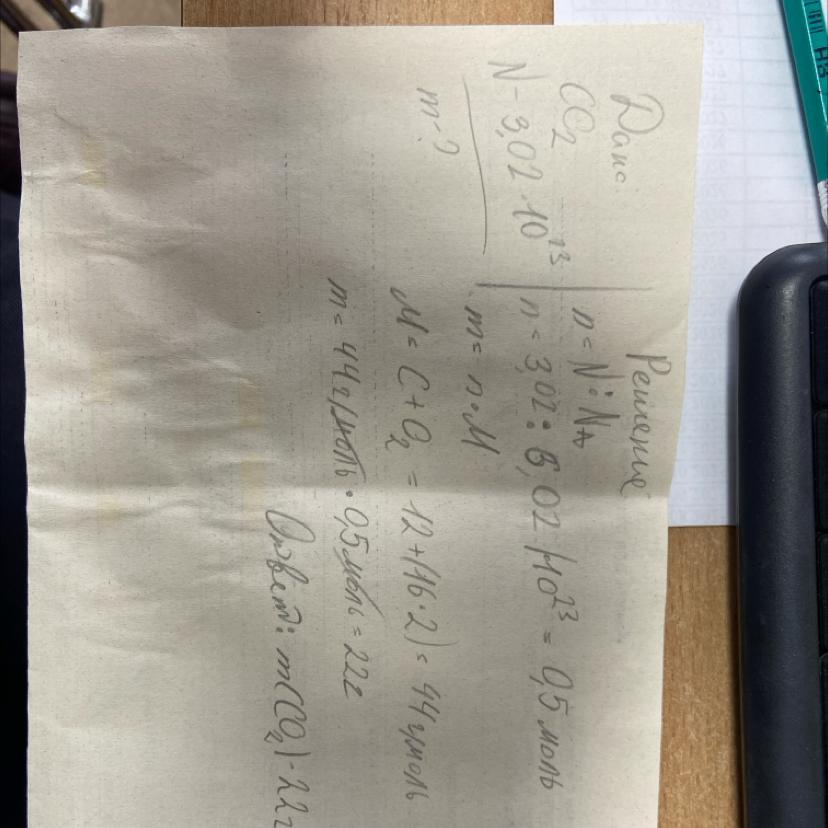 Дано:
CO2
N - 3,02 · 10²³
m - ?
Решение
n = N : NA
n = 3,02 : 6,02 · 10²³ = 0,5 моль
m = n · M
M = C + O2 = 12 + (16 · 2) = 44 г/моль
m = 44 г/моль · 0,5 моль = 22 г
Ответ: m(CO2) - 22 г